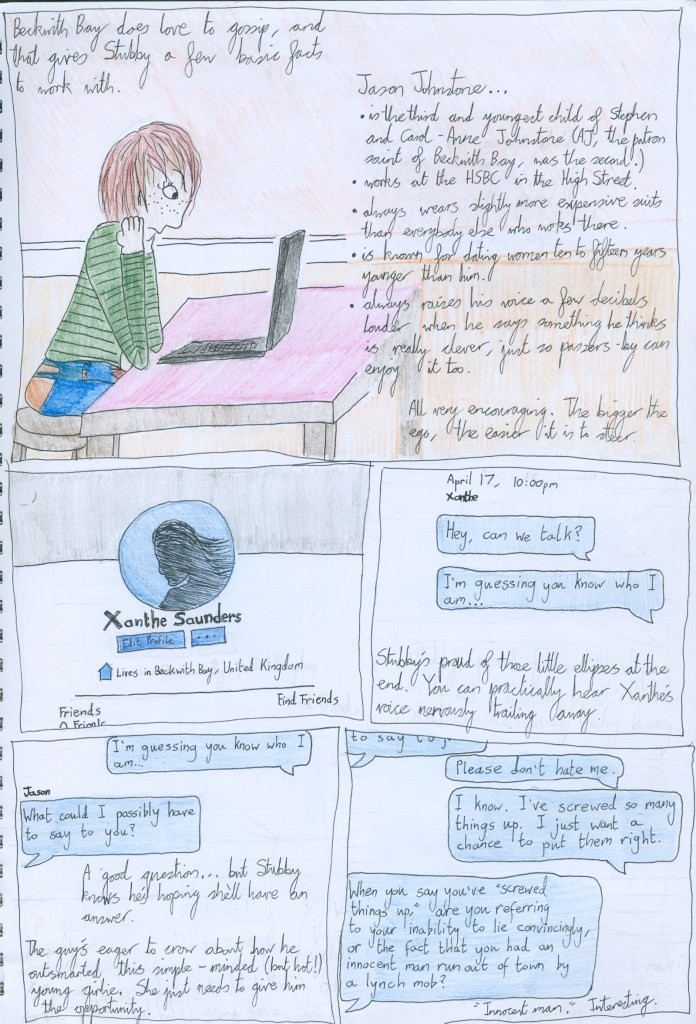 Beckwith Bay does love to gossip, and
that gives Stubby a few basic facts
to work with.
Jason Johnstone...
• is the third and youngest child of Stephen
and Carol-Anne Johnstone (AJ, the patron
saint of Beckwith Bay, was the second.)
• works at the HSBC in the High Street.
• always wears slightly more expensive suits
than everybody else who works there.
• is known for dating women ten to fifteen years
younger than him.
• always raises his voice a few decibels
louder when he says something he thinks
is really clever, just so passers-by can
enjoy it too.
All very encouraging. The bigger the
ego, the easier it is to steer.
Xanthe Saunders
Edit Profile ...
Lives in Beckwith Bay, United Kingdom
Find Friends
Friends
0 Friends
April 17, 10:00pm
Xanthe
Hey, can we talk?
I'm guessing you know who I
am...
Stubby's proud of those little ellipses at the
end. You can practically hear Xanthe's
voice nervously trailing away.
I'm guessing you know who I
am...
Jason
What could I possibly have
to say to you?
A good question... but Stubby
knows he's hoping she'll have an
answer.
The guy's eager to crow about how he
outsmarted this simple-minded (but hot!)
young girlie. She just needs to give him
the opportunity.
to say to you?
Please don't hate me.
I know. I've screwed so many
things up. I just want a
chance to put them right.
When you say you've "screwed
things up," are you referring
to your inability to lie convincingly,
or the fact that you had an
innocent man run out of town by
a lynch mob?
"Innocent man." Interesting.